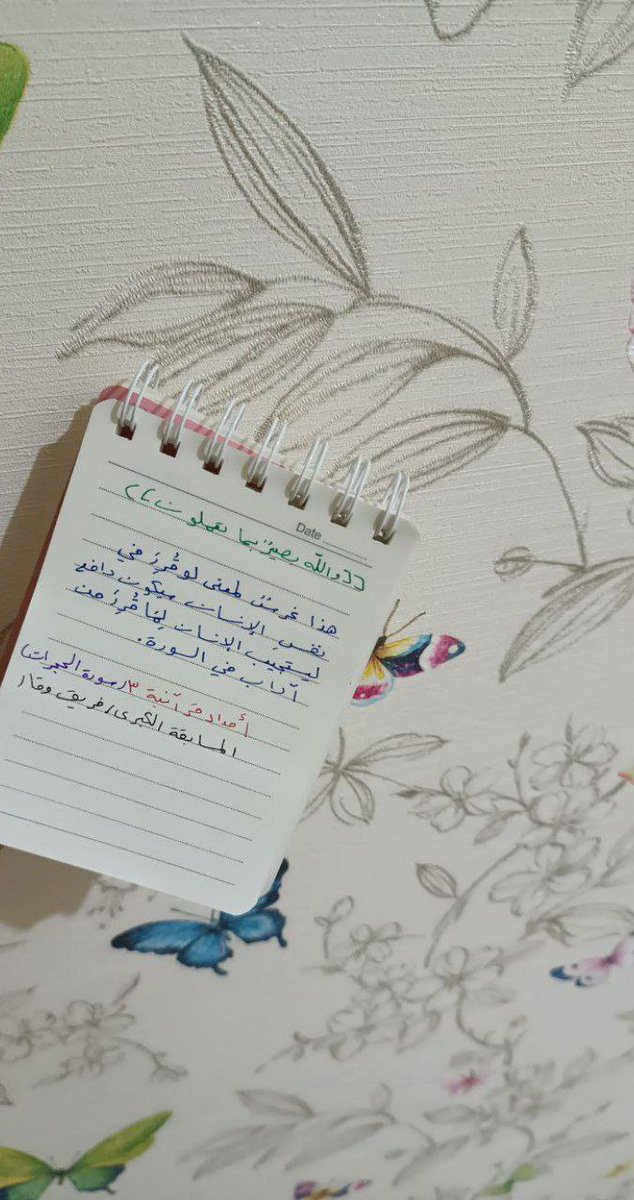 Date
((والله بصيرٌ بما تعملون))
هذا غرسٌ لمعنى لو قُرِرَ في
نفس الإنسان سيكون دافع
ليستجيب الإنسان لِمَا قُرِرَ من
آداب في السورة.
أمداد قرآنية ٣ (سورة الحجرات)
المسابقة الكبرى / فريق وقار